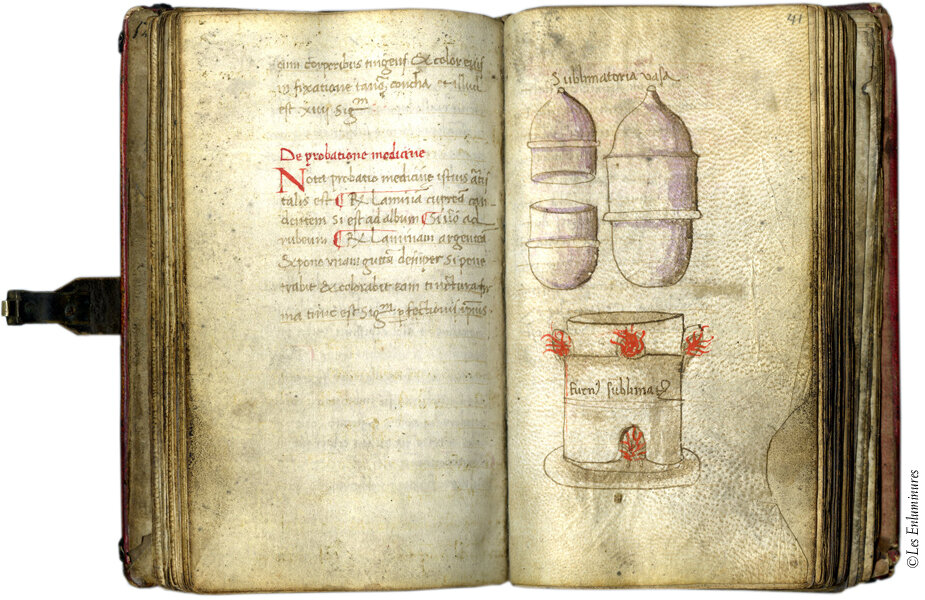 cum corporibus tingens & color eius
in fixatione concha & illud
est xiiij Sigm
De probatione medicine
Nota probatio medicine istius
talis est ¶ Rx Lamina cupream can
dentem si est ad album ¶ Si ad
rubeum ¶ Rx Laminam argenteã
& pone vnam guttã desuper si pene
trabit & colorabit eam tinctura
ma tunc est Sigm
41
Sublimatoria vasa
furn9 sublima
©Les Enluminures